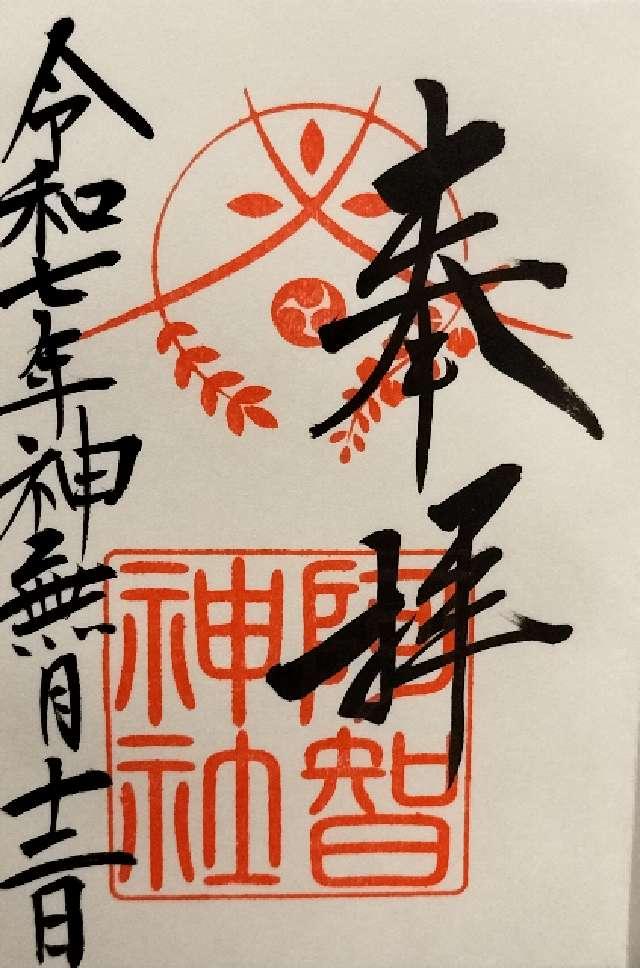 奉拝
阿智
神社
令和七年神無月十二日